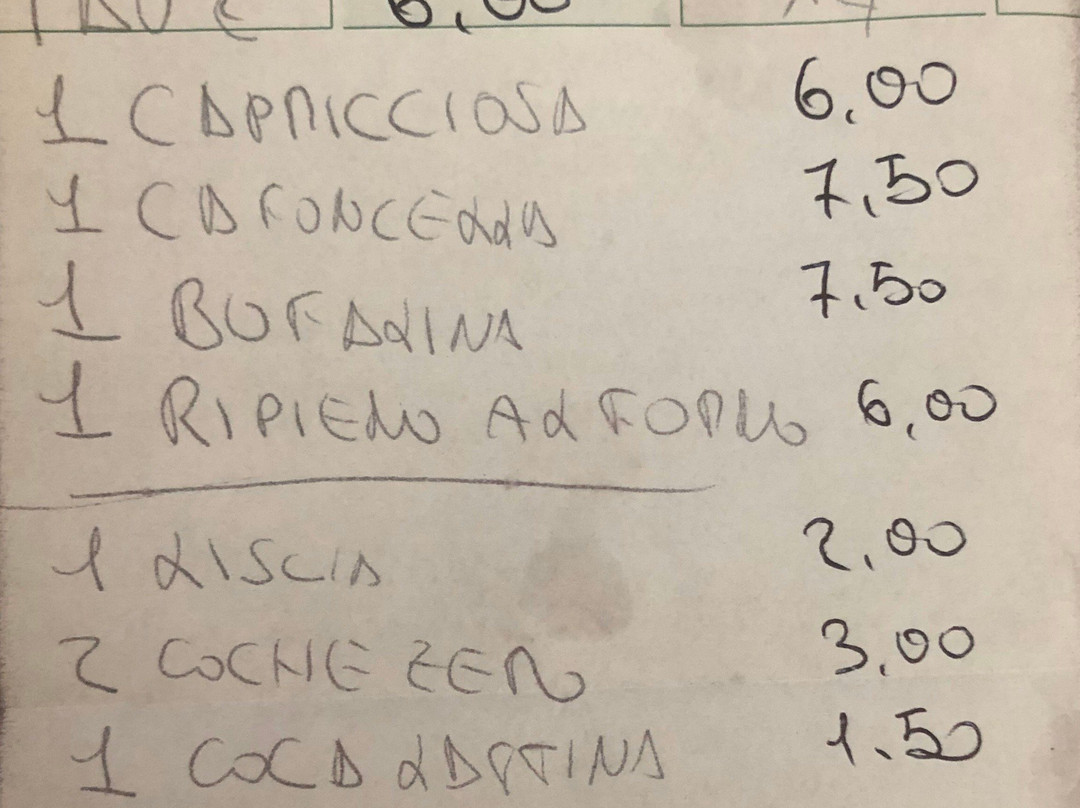 6,00
1 CAPRICCIOSA 6,00
1 CAFONCELLA 7,50
1 BUFALINA 7,50
1 RIPIENO AL FORNO 6,00
1 LISCIA 2,00
2 COCHE ZERO 3,00
1 COCA LATTINA 1.50